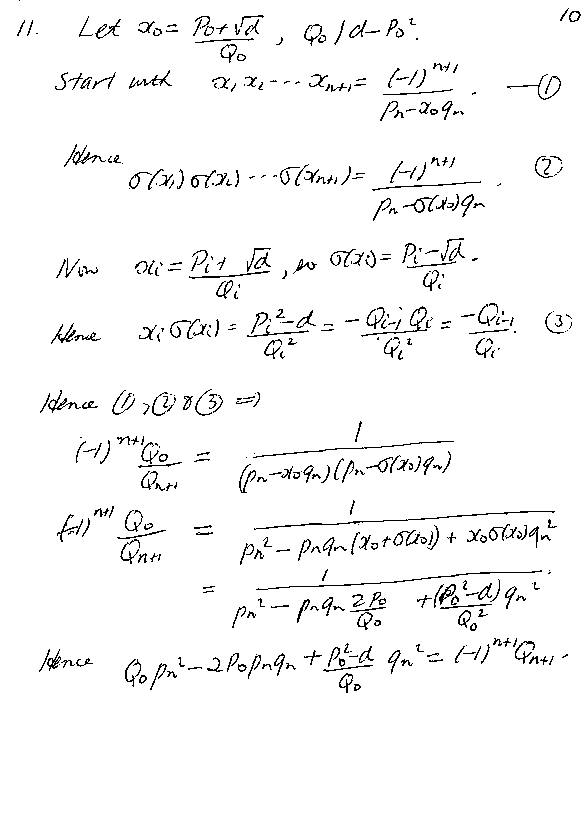 10
11. Let x₀ = (P₀+√d)/Q₀, Q₀ | d−P₀².
Start with x₁x₂⋯xₙ₊₁ = (−1)ⁿ⁺¹/(pₙ−x₀qₙ). —①
Hence
σ(x₁)σ(x₂)⋯σ(xₙ₊₁) = (−1)ⁿ⁺¹/(pₙ−σ(x₀)qₙ). ②
Now xᵢ = (Pᵢ+√d)/Qᵢ, so σ(xᵢ) = (Pᵢ−√d)/Qᵢ.
Hence xᵢσ(xᵢ) = (Pᵢ²−d)/Qᵢ² = −Qᵢ₋₁Qᵢ/Qᵢ² = −Qᵢ₋₁/Qᵢ. ③
Hence ①, ② & ③ ⇒
(−1)ⁿ⁺¹ Q₀/Qₙ₊₁ = 1/((pₙ−x₀qₙ)(pₙ−σ(x₀)qₙ))
(−1)ⁿ⁺¹ Q₀/Qₙ₊₁ = 1/(pₙ²−pₙqₙ(x₀+σ(x₀)) + x₀σ(x₀)qₙ²)
= 1/(pₙ²−pₙqₙ 2P₀/Q₀ + (P₀²−d)/Q₀² qₙ²).
Hence Q₀pₙ²−2P₀pₙqₙ + (P₀²−d)/Q₀ qₙ² = (−1)ⁿ⁺¹Qₙ₊₁.